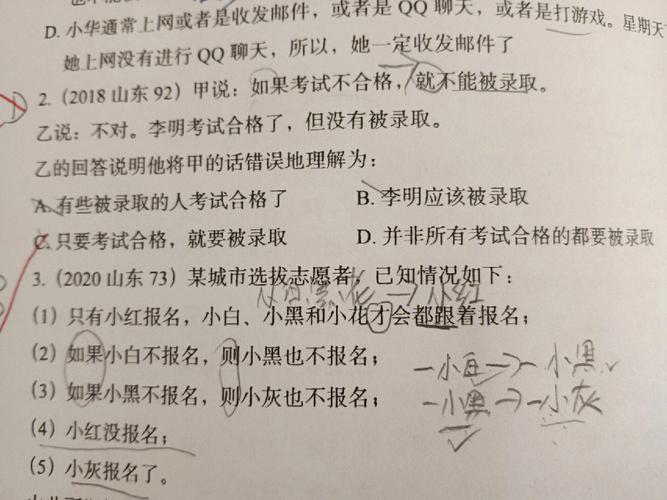 D. 小华通常上网或者是收发邮件，或者是 QQ 聊天，或者是打游戏。星期天
她上网没有进行 QQ 聊天，所以，她一定收发邮件了
2. (2018 山东 92) 甲说：如果考试不合格，就不能被录取。
乙说：不对。李明考试合格了，但没有被录取。
乙的回答说明他将甲的话错误地理解为：
A. 有些被录取的人考试合格了 B. 李明应该被录取
C. 只要考试合格，就要被录取 D. 并非所有考试合格的都要被录取
3. (2020 山东 73) 某城市选拔志愿者，已知情况如下：
小白黑花→小红
(1) 只有小红报名，小白、小黑和小花才会都跟着报名；
(2) 如果小白不报名，则小黑也不报名；
一小白→一小黑
(3) 如果小黑不报名，则小灰也不报名；
一小黑→一小灰
(4) 小红没报名；
(5) 小灰报名了。